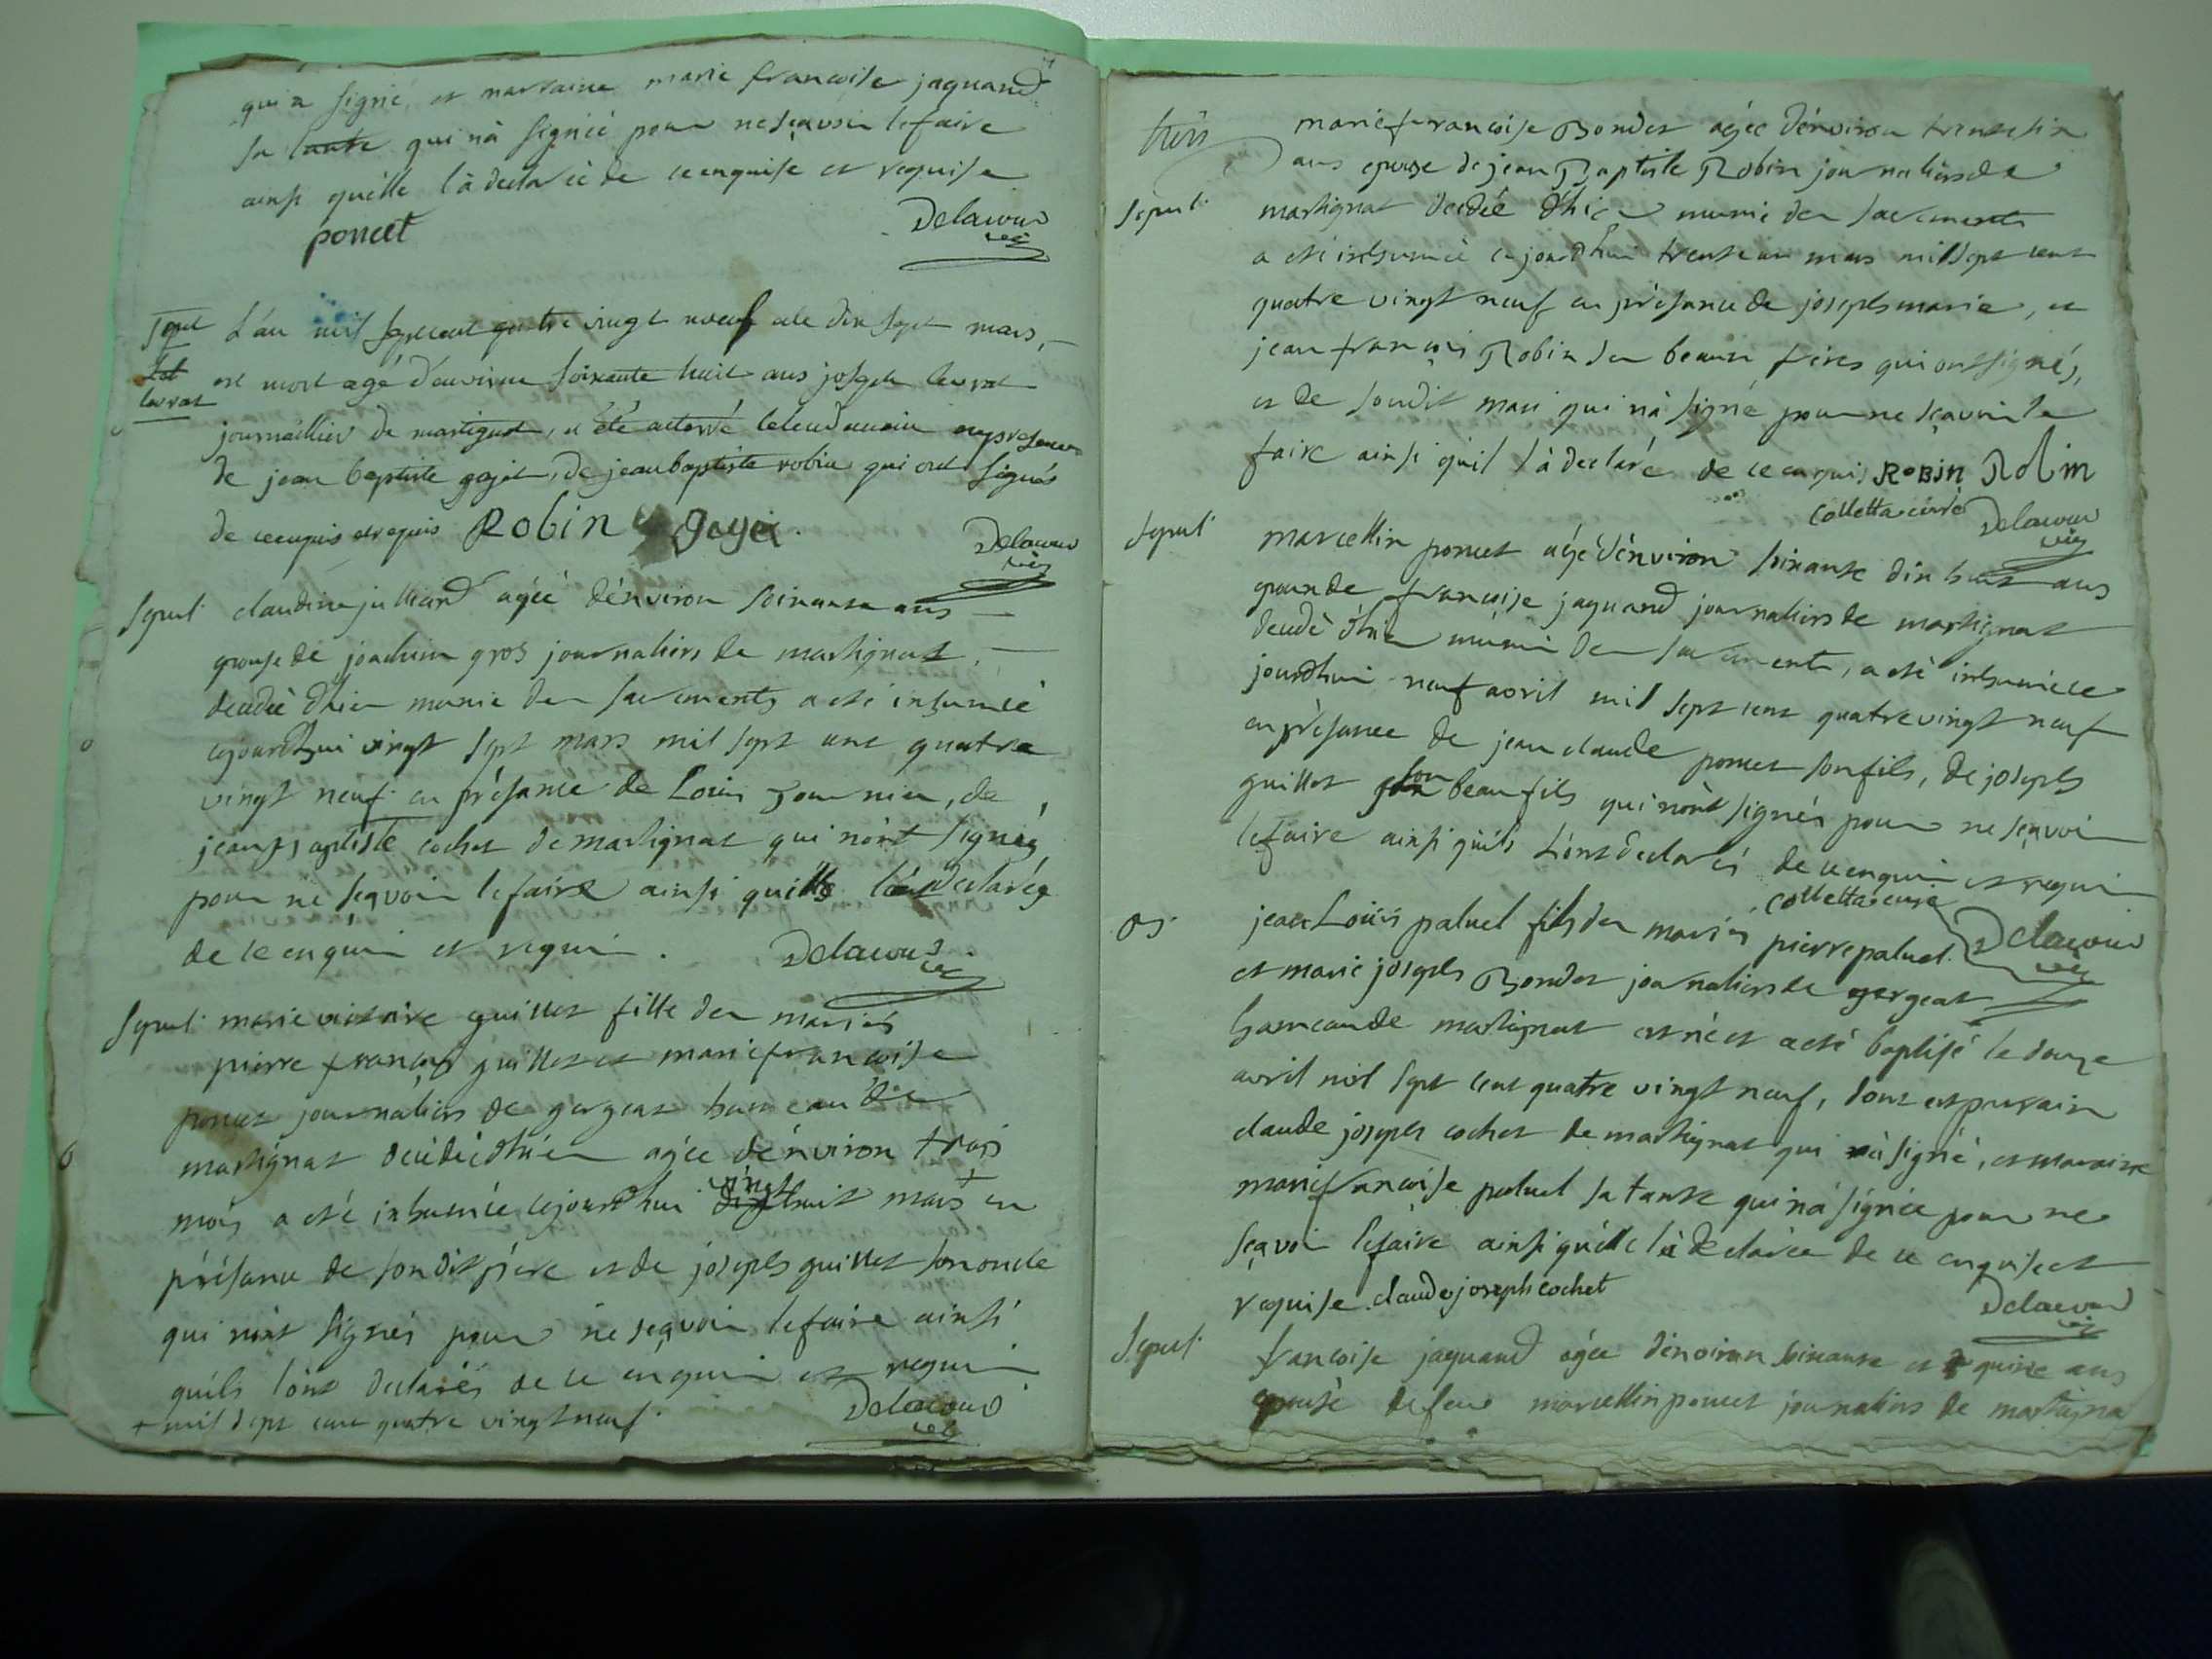 qui a signé, et marraine marie francoise jaquand
sa tante qui n'a signée pour ne sçavoir le faire
ainsi quélle l'à declarée de ce enquise et requise
poncet Delacour vic
Sepul L'an mil septcent quatre vingt noeuf ale dix sept mars,
est mort agé d'environ soixante huit ans joseph levrat
levrat
journallier de martignat, a été atterré le lendemain enpresence
de jean baptiste gojet, de jean baptiste robin qui ont signés
de ce enquis et requis Robin Delacour vic
Sepul claudine julliard agéé dénviron soixante ans
epouse de joachim gros journaliers de martignat,
decedéé d'hier munie des sacrements a eté inhuméé
cejourdhui vingt sept mars mil sept cent quatre
vingt neuf en présance de Louis journier, de
jean Baptiste cochet de martignat qui nónt signés
pour ne sçavoir le faire ainsi quills lónt declarés
de ce enquis et requis. Delacour vic
Sepul marie victoire guillot fille des mariés
pierre françois guillot et marie francoise
poncet journaliers de gergeat hameau de
martignat décédéé d'hier agée dénviron trois
mois a eté inhumée cejourdhui vingt huit mars + en
présance de son dit pére et de joseph guillot son oncle
qui nónt signés pour ne sçavoir le faire ainsi
quils lónt declarés de ce enquis et requis
+ mil sept cent quatre vingt neuf. Delacour vic
trois marie francoise Bondet agée dénviron trente six
ans epouse de jean Baptiste Robin journaliers de
Sepul martignat decédée d'hier munie des sacrements
a eté inhumée cejourdhui trente un mars mil sept cent
quatre vingt neuf en présance de joseph marie, et
jean françois Robin ses beaux fréres qui ont signés,
et de son dit mari qui n'à signé pour ne sçavoir le
faire ainsi quil l'à declaré de ce enquis ROBIN Robin
colletta curé Delacour vic
Sepul marcellin poncet agé dénviron soixante dix huit ans
epoux de francoise jaquand journaliers de martignat
decedé d'hier muni des sacrements, a eté inhumé ce
jourdhui neuf avril mil sept cent quatre vingt neuf
en présance de jean claude poncet son fils, de joseph
guillot son beau fils qui nónt signés pour ne sçavoir
le faire ainsi quils l'ónt declarés de ce enquis et requis
colletta curé Delacour vic
jean Loüis paluel fils des mariés pierre paluel
et marie joseph Bondet journaliers de gergeat
hameau de martignat est né et a eté baptisé le douze
avril mil sept cent quatre vingt neuf, dont est parrain
claude joseph cochet de martignat qui à signé, et marraine
marie francoise paluel sa tante qui n'a signée pour ne
sçavoir le faire ainsi quélle l'à declarée de ce enquise et
requise claude joseph cochet Delacour vic
Sepul francoise jaquand agée dénviron soixante et quinze ans
epouse de feu marcellin poncet journaliers de martigna